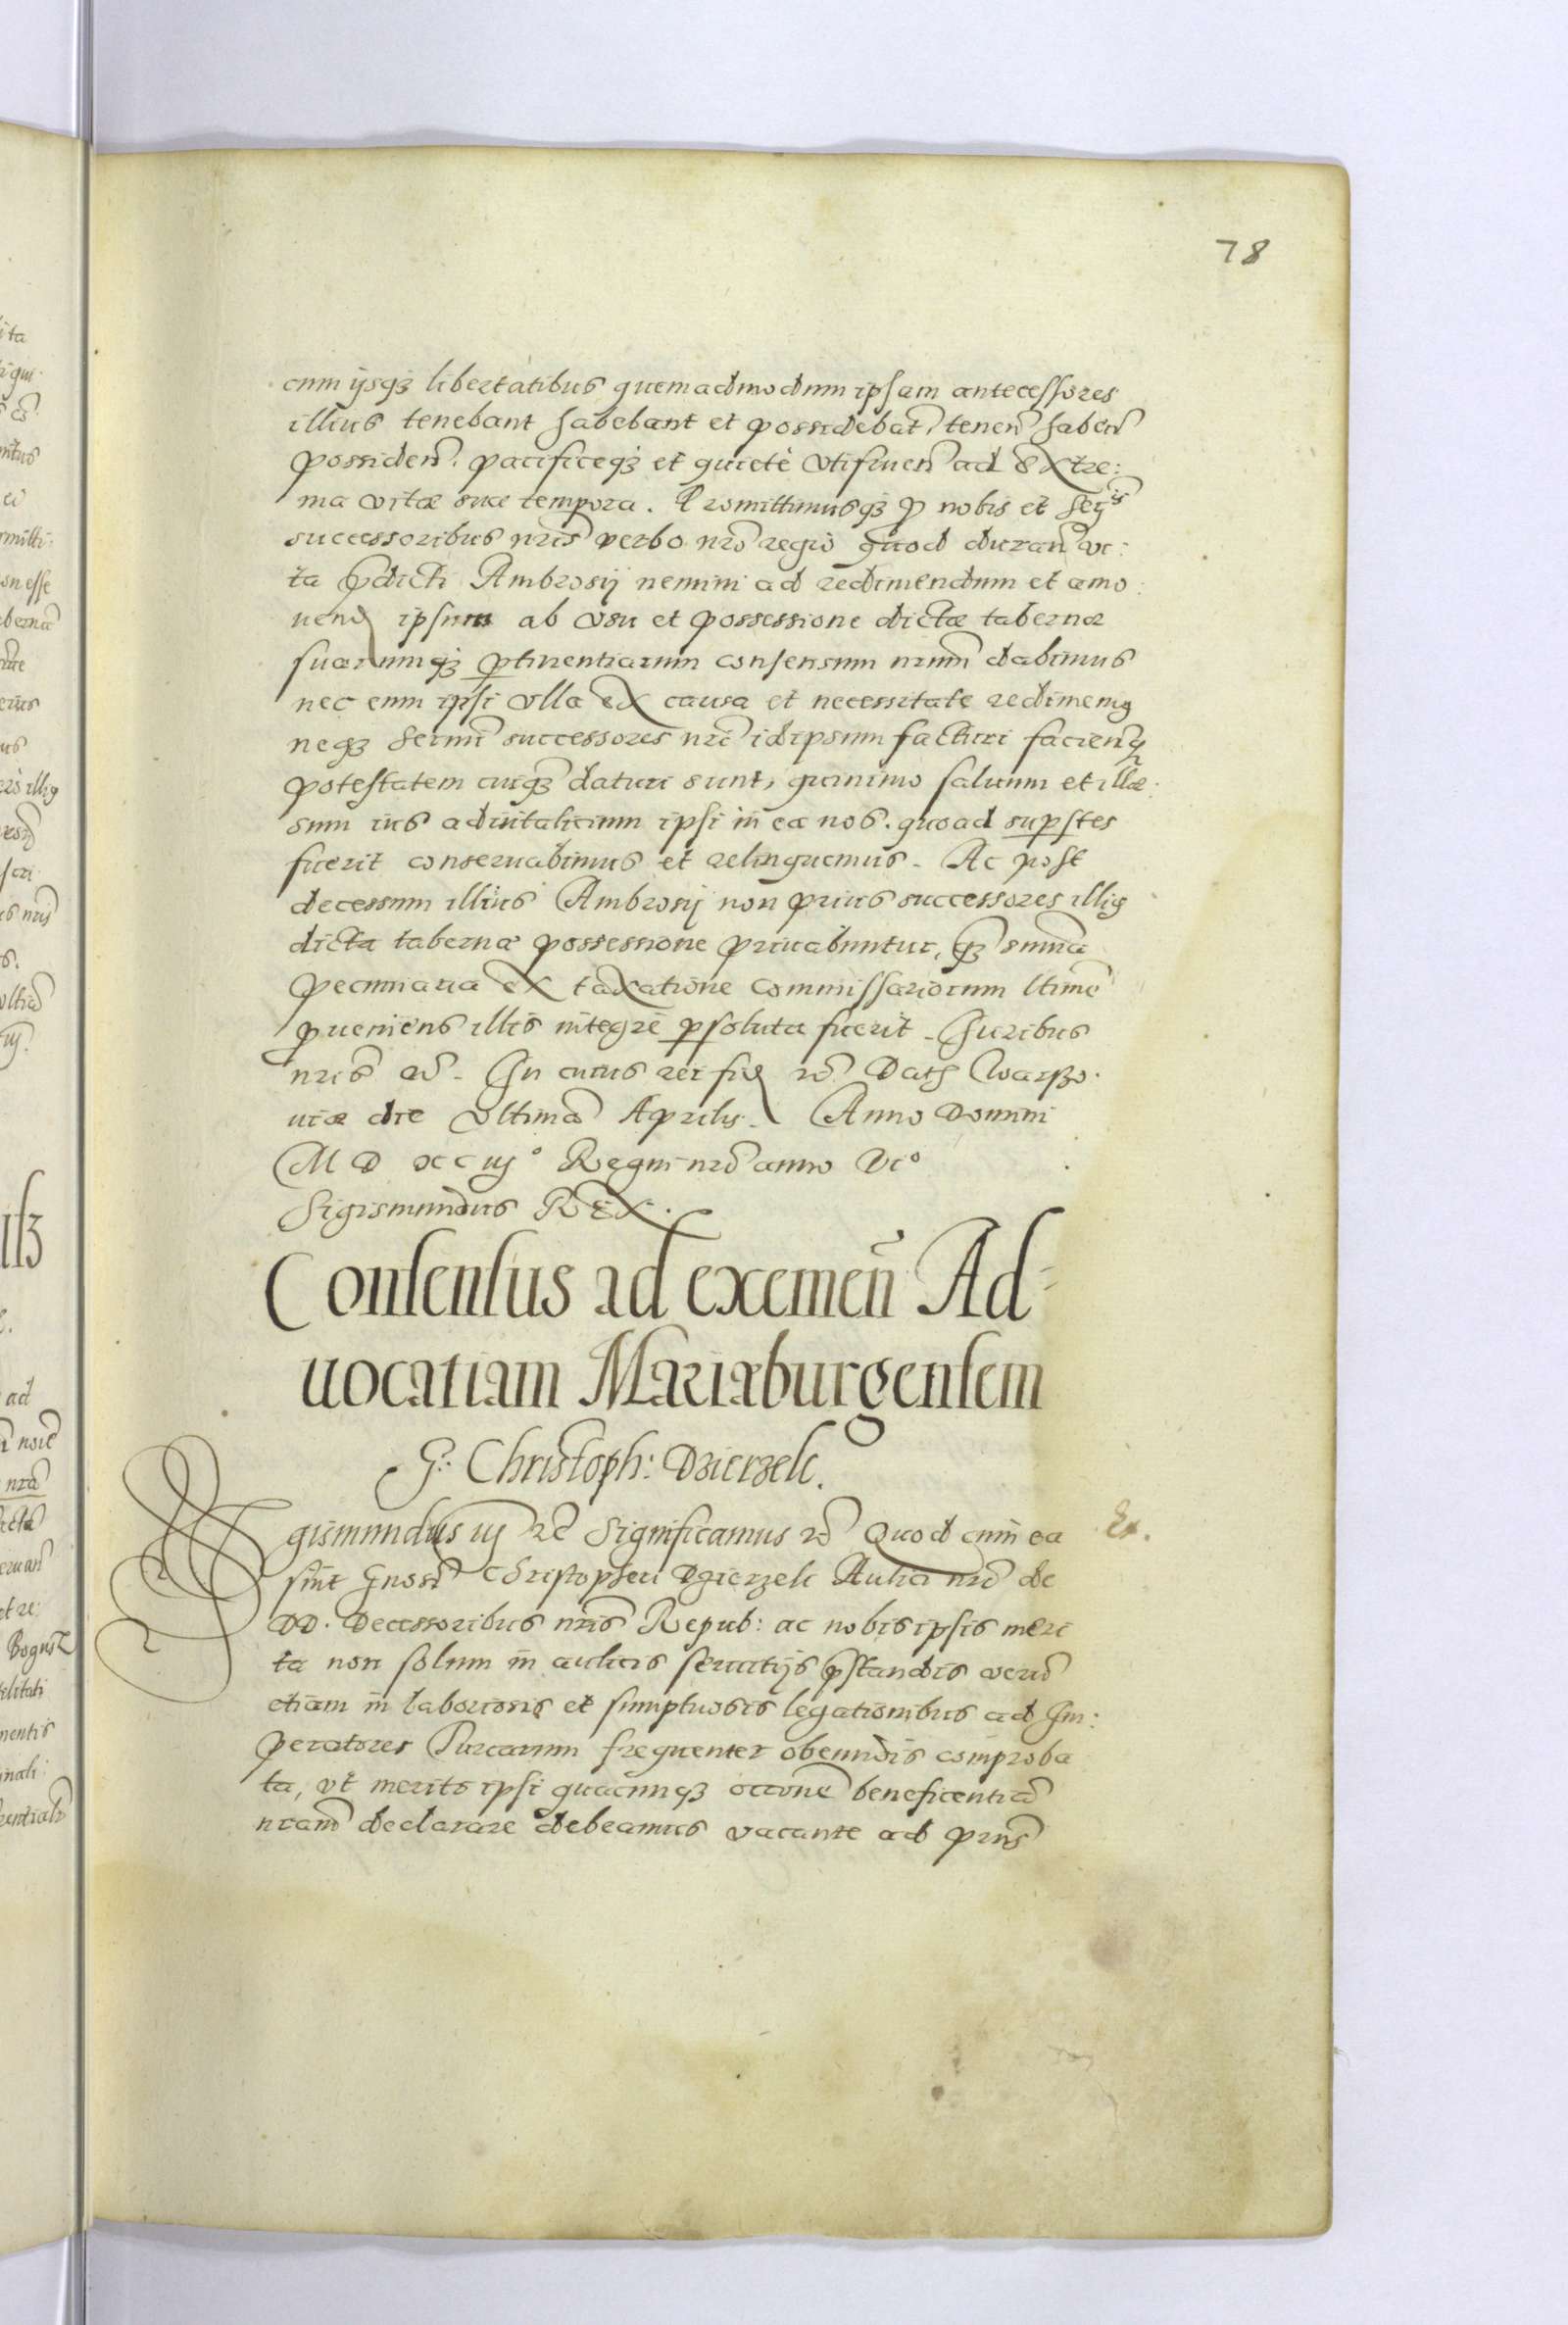 78
cum ijsq3 libertatibus quemadmodum ipsam antecessores
illius tenebant habebant et possidebāt, tenen̄ haben̄
possiden̄. pacificeq3 et quietè vtifruen̄ ad extre:
ma vitæ suæ tempora. Promittimusq3 p nobis et Serᵐⁱˢ
successoribus nr̄is verbo nr̄o regio quod duran̄ vi:
ta pdicti Ambrosij nemini ad redimendum et amo:
uend ipsum ab vsu et possessione dictæ tabernæ
suarumq3 ptinentiarum consensum nrum̄ dabimus
nec enim ipsi vlla ex causa et necessitate redimemq
neq3 Sermi successores nr̄i idipsum facturi faciendiq
potestatem cuiq3 daturi sunt, quinimo saluum et illæ:
sum ius aduitalicium ipsi in ea nos. quoad supstes
fuerit conseruabimus et relinquemus. Ac post
decessum illius Ambrosij non prius successores illiq
dicta tabernæ possessione priuabuntur, q3 sum̄a
pecuniaria ex taxatione commissariorum ltime
pueniens illis integrè psoluta fuerit. Iuribus
nris etc̄. In cuius rei fid rc̄. Dath Warszo:
uiæ die vltima Aprilis. Anno Domini
M D XC iij° Regni nr̄o anno Vi°
Sigismundus REX.
Consensus ad exemen̄ Ad=
uocatiam Mariæburgensem
G: Christoph: Dzierzek.
Sigismundus iij rc̄ Significamus rc̄ Quod cum ea
sint Gnosi Christopheri Dzierzek Aulici nr̄i de
DD. Decessoribus nr̄is Repub: ac nobis ipsis meri
ta non solum in aulicis seruitijs pstandis verū
etiam in laboriosis et sumptuosis legationibus ad Im:
peratores Turcarum frequenter obeundis comproba
ta, vt merito ipsi quacunq3 occōne beneficentiā
nram̄ declarare debeamus vacante ad prns̄
Ex.